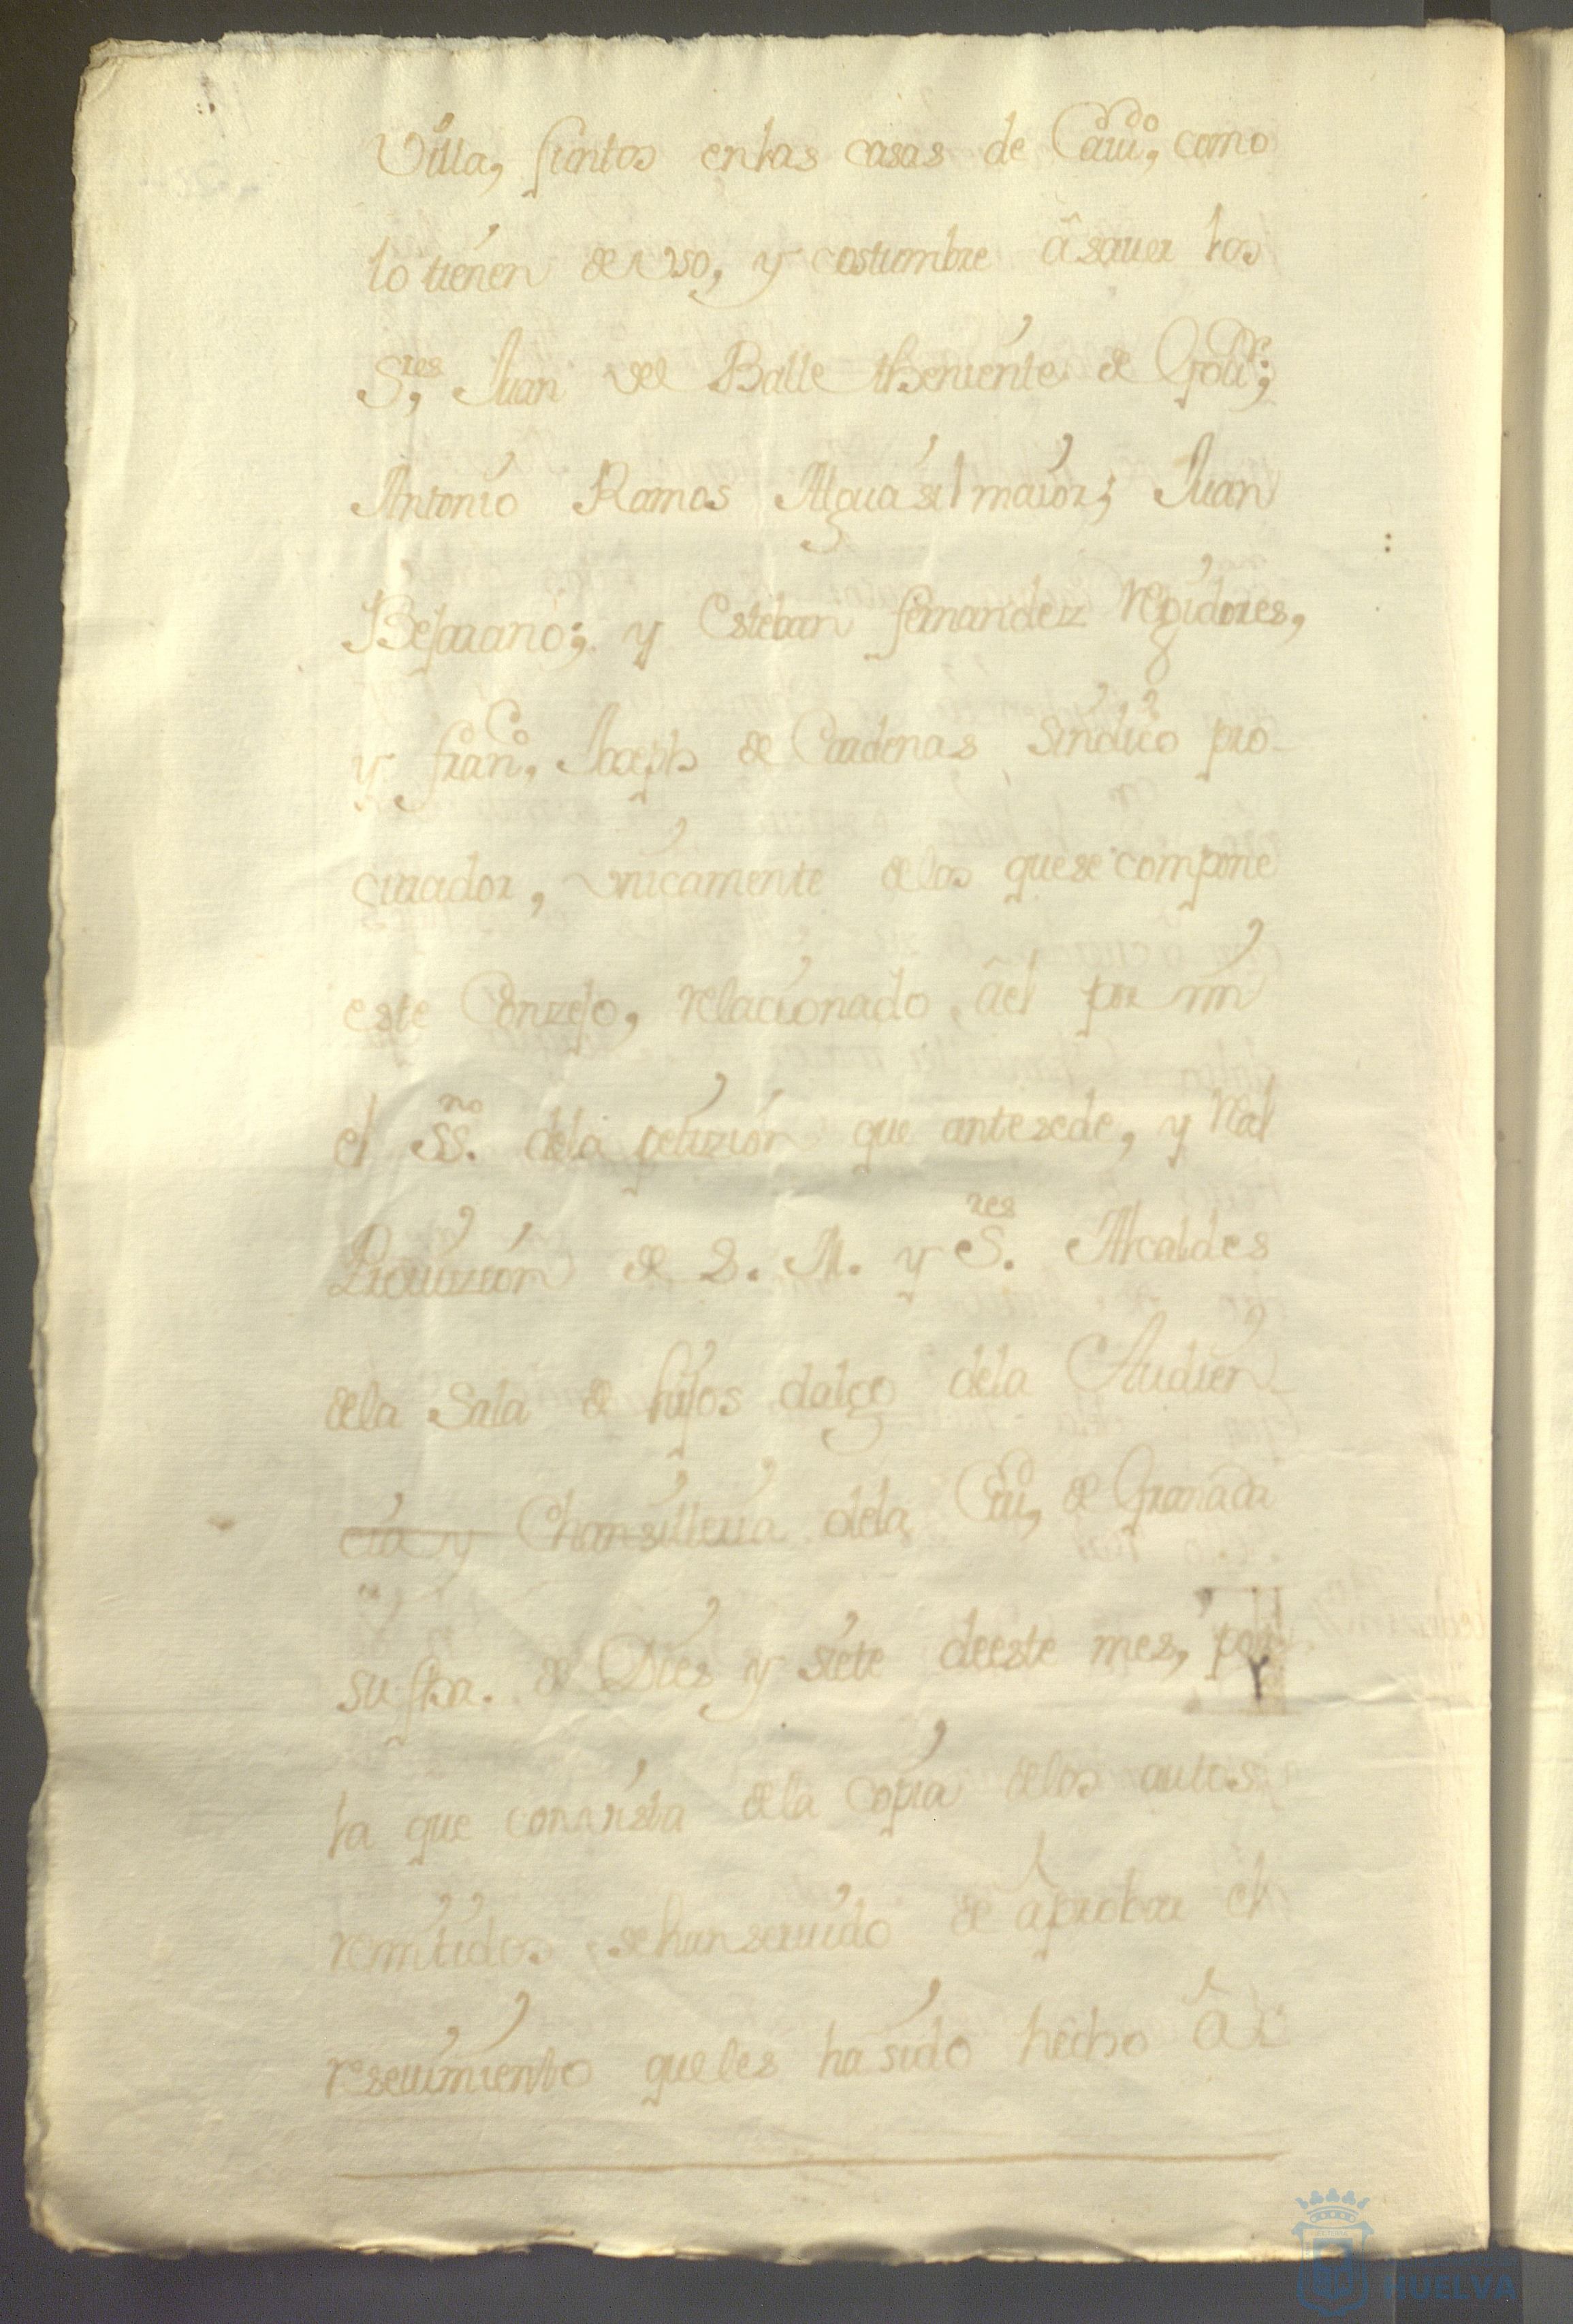 Villa, juntos enlas casas de Cavdo, como
lo tienen de vso, y costumbre â saver los
Sres, Juan del Balle theniente de Govr;
Antonio Ramos Alguasil maior; Juan
Bejarano; y Esteban fernandez regidores,
y franco, Joseph de Cardenas sindico pro-
curador, vnicamente delos quese compone
este Conzejo, relacionado âel por mi
el SSno. dela petizion que antesede, y Real
Provizion de S. M. y Sres. Alcaldes
dela Sala de hijos dalgo dela Audien-
cia y Chansilleria dela Ciud, de Granada
su fha. de Dies y siete deeste mes, por
la que con vista dela copia delos autos
remitidos, sehan servido de aprobar el
resevimiento queles ha sido hecho â
HUELVA